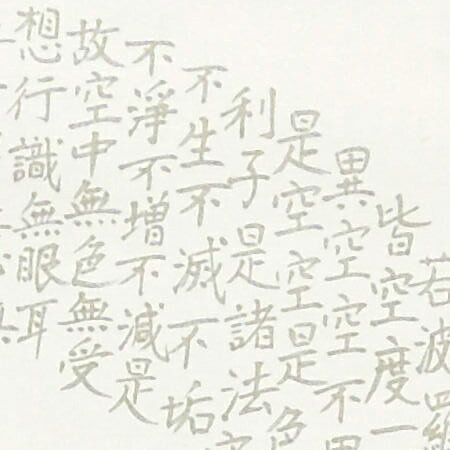 若波羅
皆空度一
異空空不
是空空是色
利子是諸法
不生不滅不垢
不淨不増不減是
故空中無色無受
想行識無眼耳